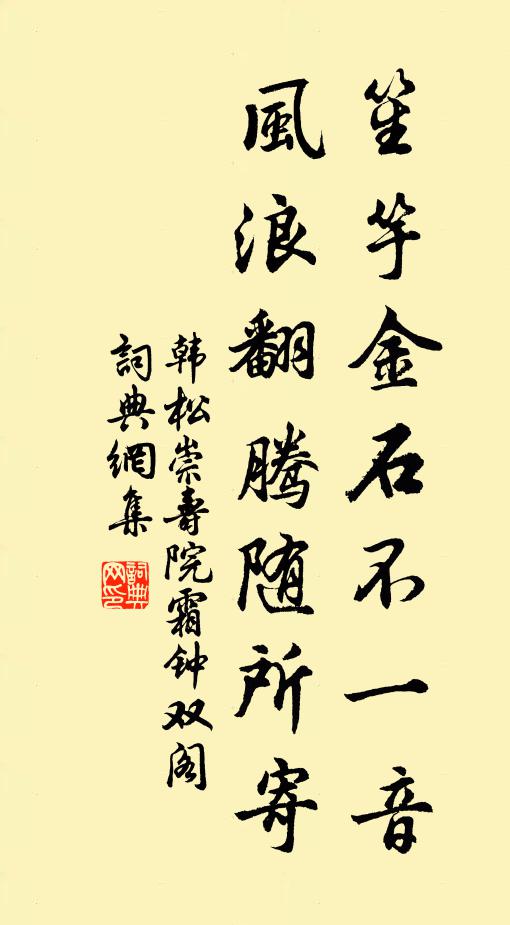 笙竽金石不一音
風浪翻騰随所寄
韩松崇壽院霜钟双阁
詞典網集
詞典网印